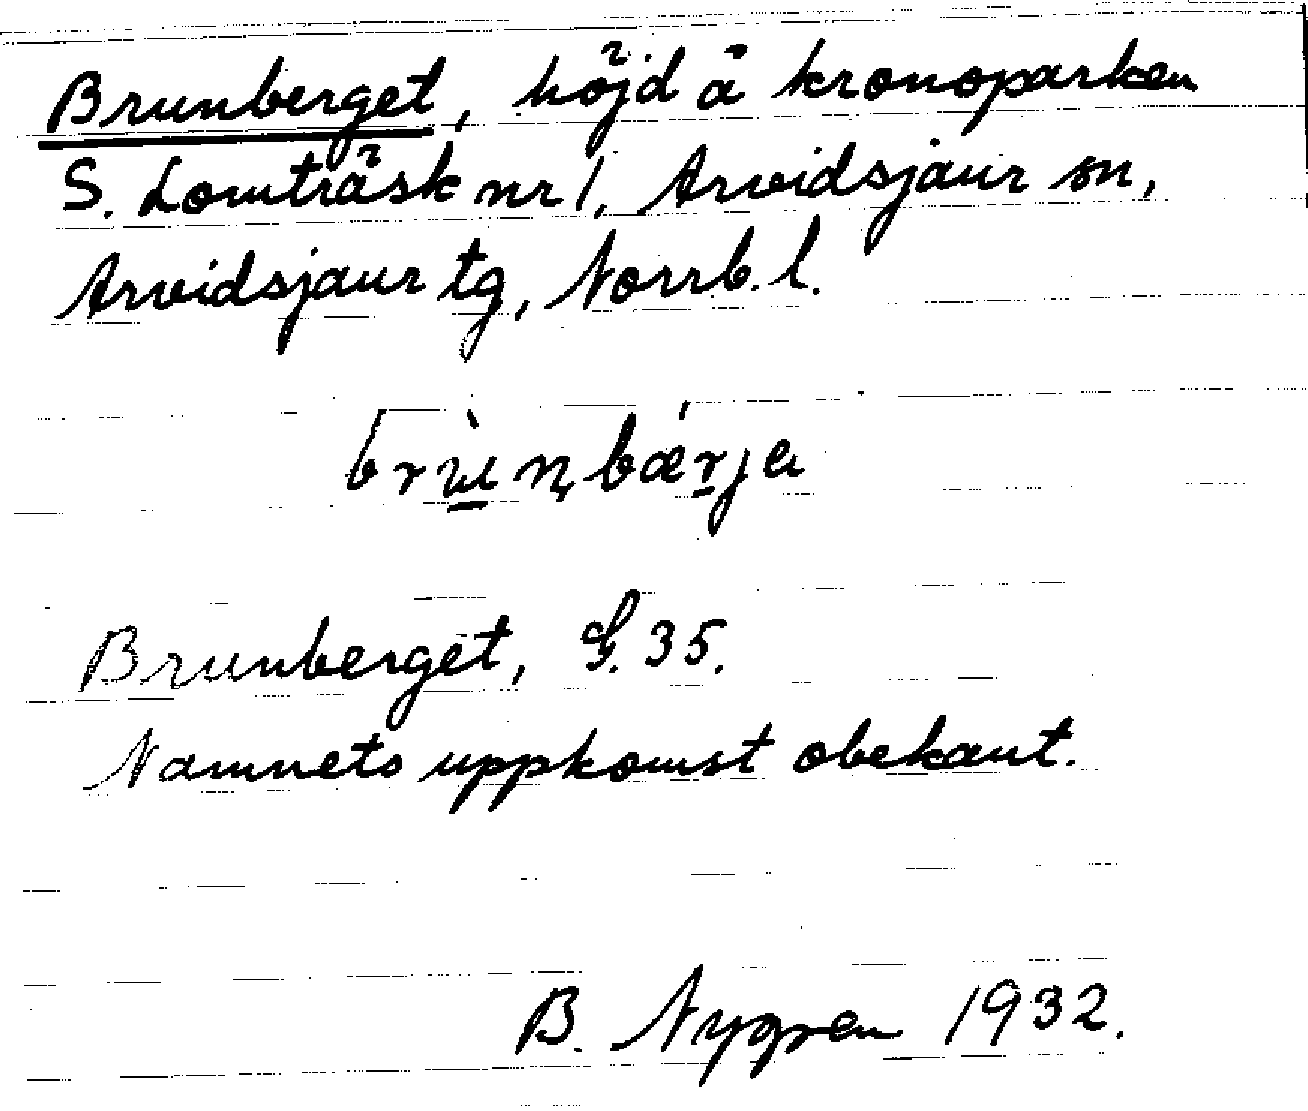 Brunberget, höjd å kronoparken
S. Lomträsk nr 1, Arvidsjaur sn,
Arvidsjaur tg, Norrb. l.
brùn̥bárja
Brunberget, G. 35.
Namnets uppkomst obekant.
B. Nygren 1932.